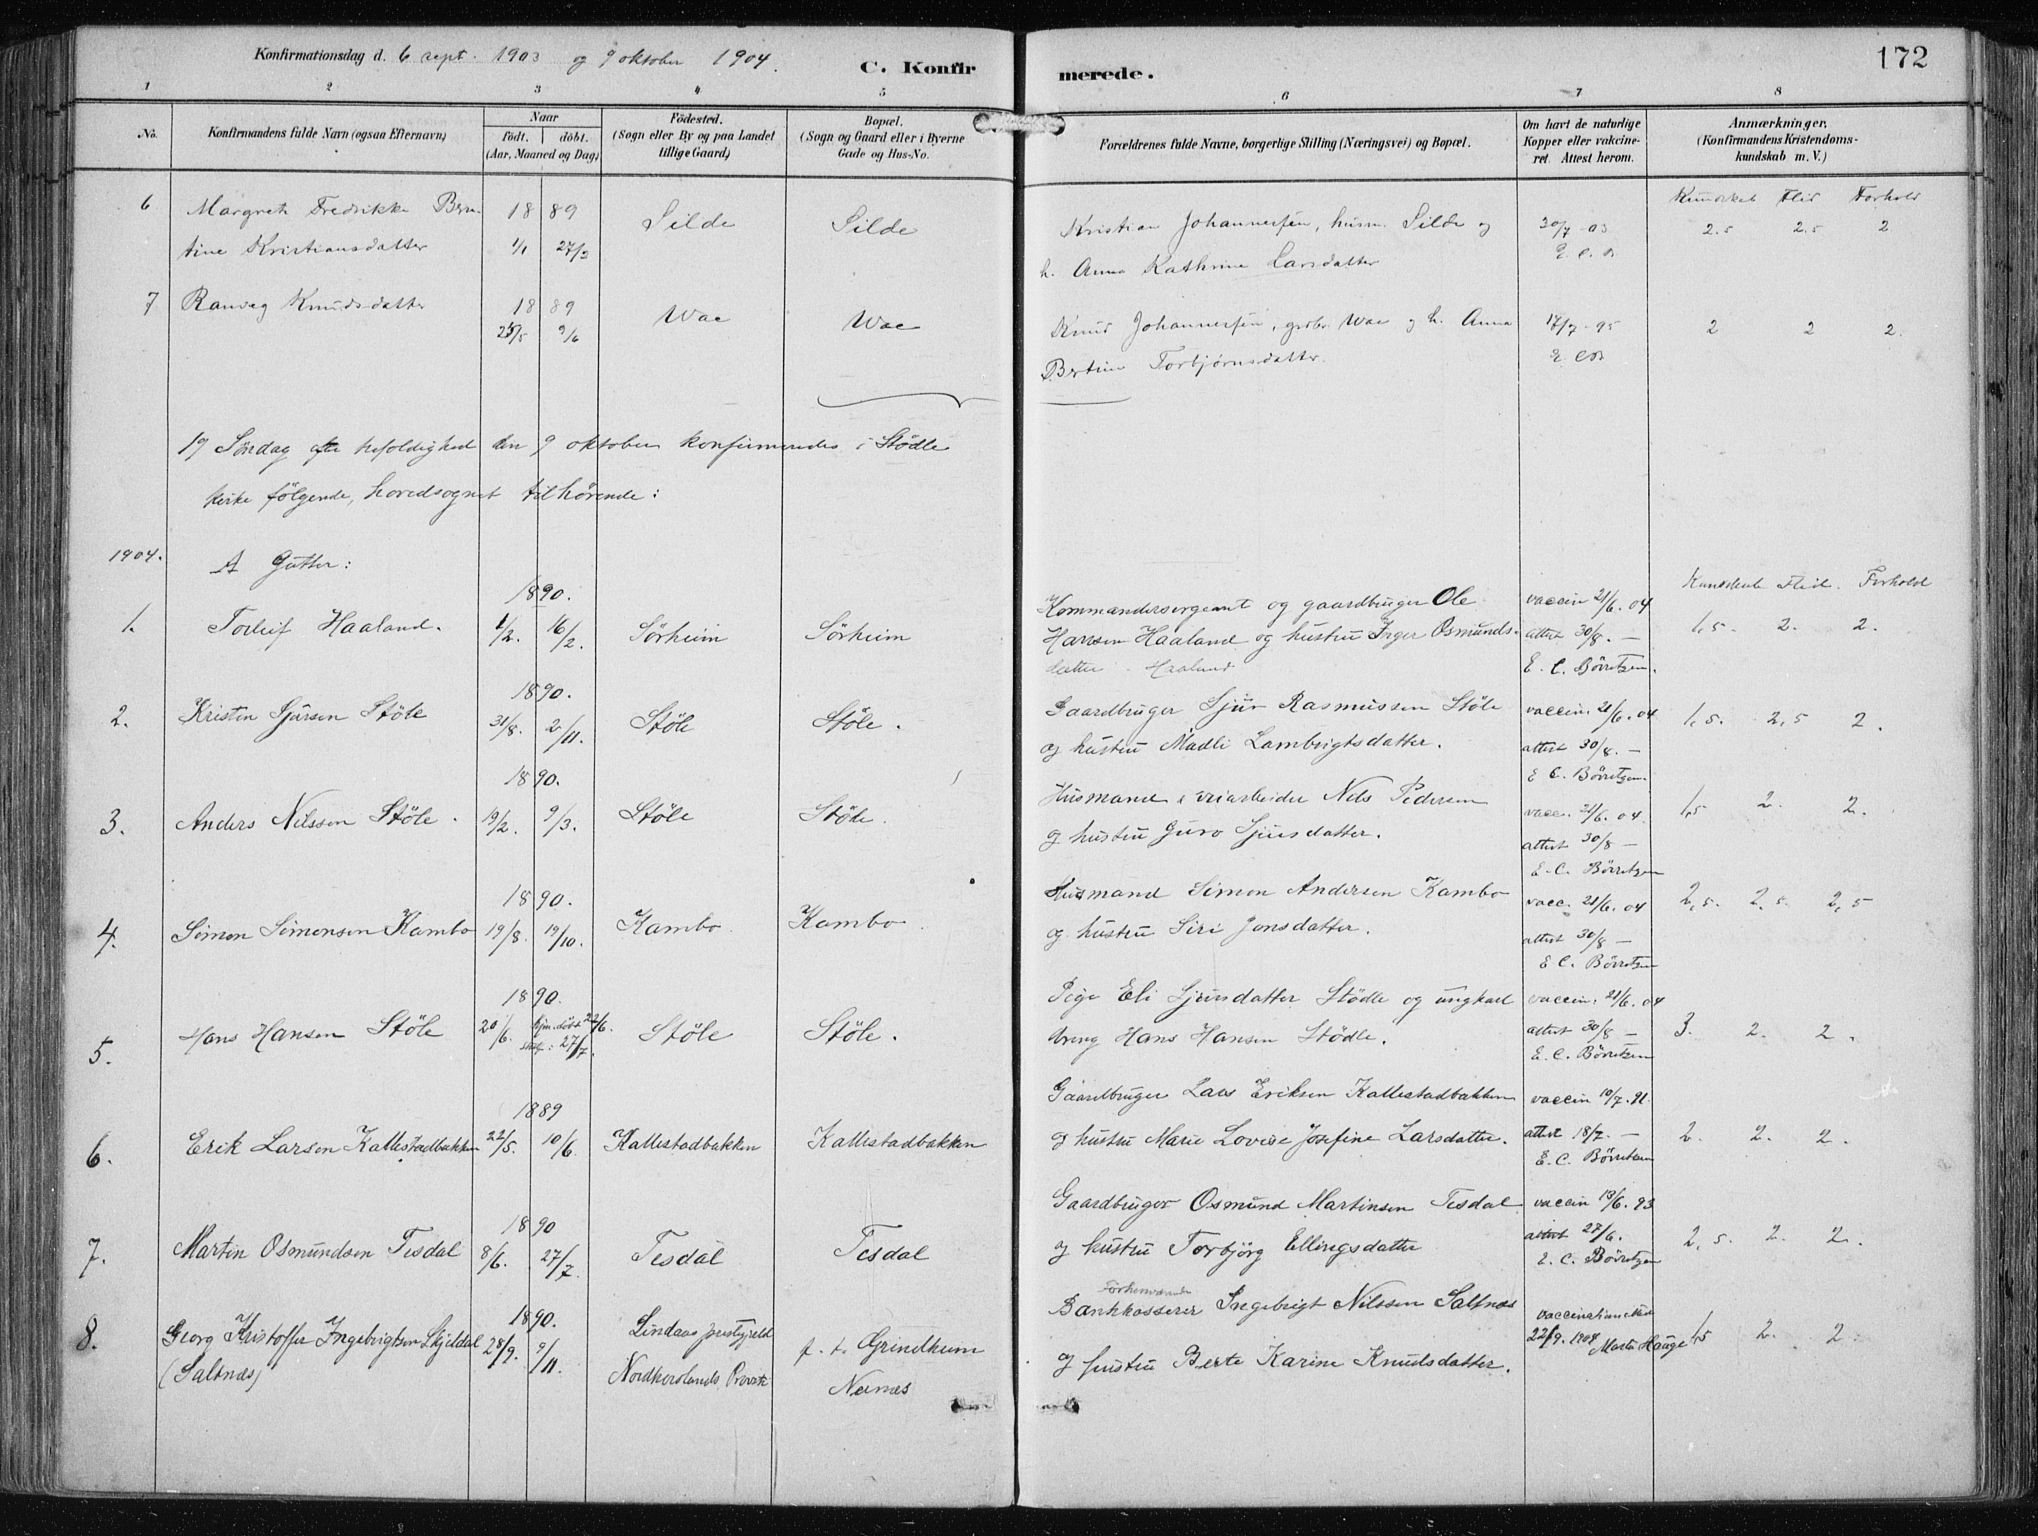 Konfirmationsdag d. 6 sept. 1903 og 9 oktober 1904.
C. Konfirmerede.
172
1 2 3 4 5 6 7 8
No.
Konfirmandens fulde Navn (ogsaa Efternavn)
Naar
födt. döbt.
(Aar, Maaned og Dag)
Födested.
(Sogn eller By og paa Landet
tillige Gaard)
Bopæl.
(Sogn og Gaard eller i Byerne
Gade og Hus-No.
Forældrenes fulde Navne, borgerlige Stilling (Næringsvei) og Bopæl.
Om havt de naturlige
Kopper eller vakcine-
ret. Attest herom.
Anmærkninger,
(Konfirmandens Kristendoms-
kundskab m. V.)
Kundskab Flid Forhold
6 Margrete Fredrikke Bern- 1889 Silde Silde Kristian Johannessen, husm. Silde og 30/7 03 2.5 2.5 2
tine Kristiansdatter 1/1 27/3 h. Anna Kathrine Larsdatter E. C. B
7 Ranveg Knudsdatter 1889 Wae Wae Knud Johannessen, grdbr. Wae og h. Anna 17/7 95 2 2 2.
25/5 9/6 Bertine Torbjørnsdatter. E. C B
19 Söndag efter trefoldighed den 9 oktober konfirmeredes i Stödle
kirke fölgende, hovedsognet tilhörende:
1904. A Gutter:
Kundskab Flid. Forhold
1. Torleif Haaland. 1890. 1/2. 16/2. Sörheim Sörheim Kommandersergeant og gaardbruger Ole vaccin 21/6. 04 1,5. 2. 2.
Hansen Haaland og hustru Inger Osmunds- attest 30/8. —
datter Haaland E. C. Börretzen.
2. Kristen Sjursen Stöle 1890. 31/8. 2/11. Stöle Stöle. Gaardbruger Sjur Rasmussen Stöle vaccin. 21/6. 04 1,5. 2,5 2.
og hustru Madli Lambrigtsdatter. attest 30/8. —
E C. Börretzen.
3. Anders Nilssen Stöle. 1890. 19/2. 9/3. Stöle Stöle. Husmand & veiarbeider Nels Pedersen vacc. 21/6. 04. 1,5 2. 2.
og hustru Guro Sjursdatter. attest 30/8 —
E. C. Börretzen
4. Simon Simonsen Kambo 1890. 19/8. 19/10. Kambo. Kambo. Husmand Simon Andersen Kambo vacc. 21/6. 04 2,5. 2,5. 2,5
og hustru Siri Jonsdatter. attest 30/8 —
E C. Börretzen
5. Hans Hansen Stöle 1890. 20/6. hjm. döbt 22/6. 27/7. Stöle Stöle. Pige Eli Sjursdatter Stödle og ungkarl vaccin. 21/6. 04 3. 2. 2.
dreng Hans Hansen Stödle. attest 30/8 —
E. C. Börretzen
6. Erik Larsen Kallestadbakken 1889 22/5. 10/6. Kallestadbakken Kallestadbakken Gaardbruger Lars Eriksen Kallestadbakken vaccin 10/7. 91. 2. 2. 2.
og hustru Marie Lovise Josefine Larsdatter. attest 18/7. —
E. C. Börretzen
7. Martin Osmundsen Tesdal 1890 8/6. 27/7. Tesdal Tesdal Gaardbruger Osmund Martinsen Tesdal vaccin 13/6. 93 2,5. 2. 2.
og hustru Torbjörg Ellingsdatter attest 27/6.
E. C. Börretzen
8. Georg Kristoffer Ingebrigtsen Skjeldal 1890. 28/9. 9/11. Lindaas prestgjeld f. t. Grindheim Forhenværende Bankkasserer Ingebrigt Nilssen Saltnæs 1,5 2. 2.
(Saltnæs) Nordhordlands Provsti Nernæs og hustru Berte Karine Knudsdatter. 22/9. 1904 Marta Hauge